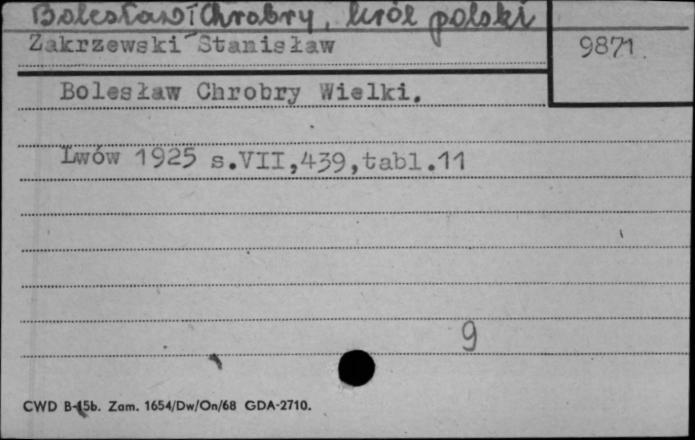 Bolesław I Chrobry, król polski
Zakrzewski Stanisław
9871
Bolesław Chrobry Wielki.
Lwów 1925 s.VII,439,tabl.11
9
CWD B-15b. Zam. 1654/Dw/On/68 GDA-2710.